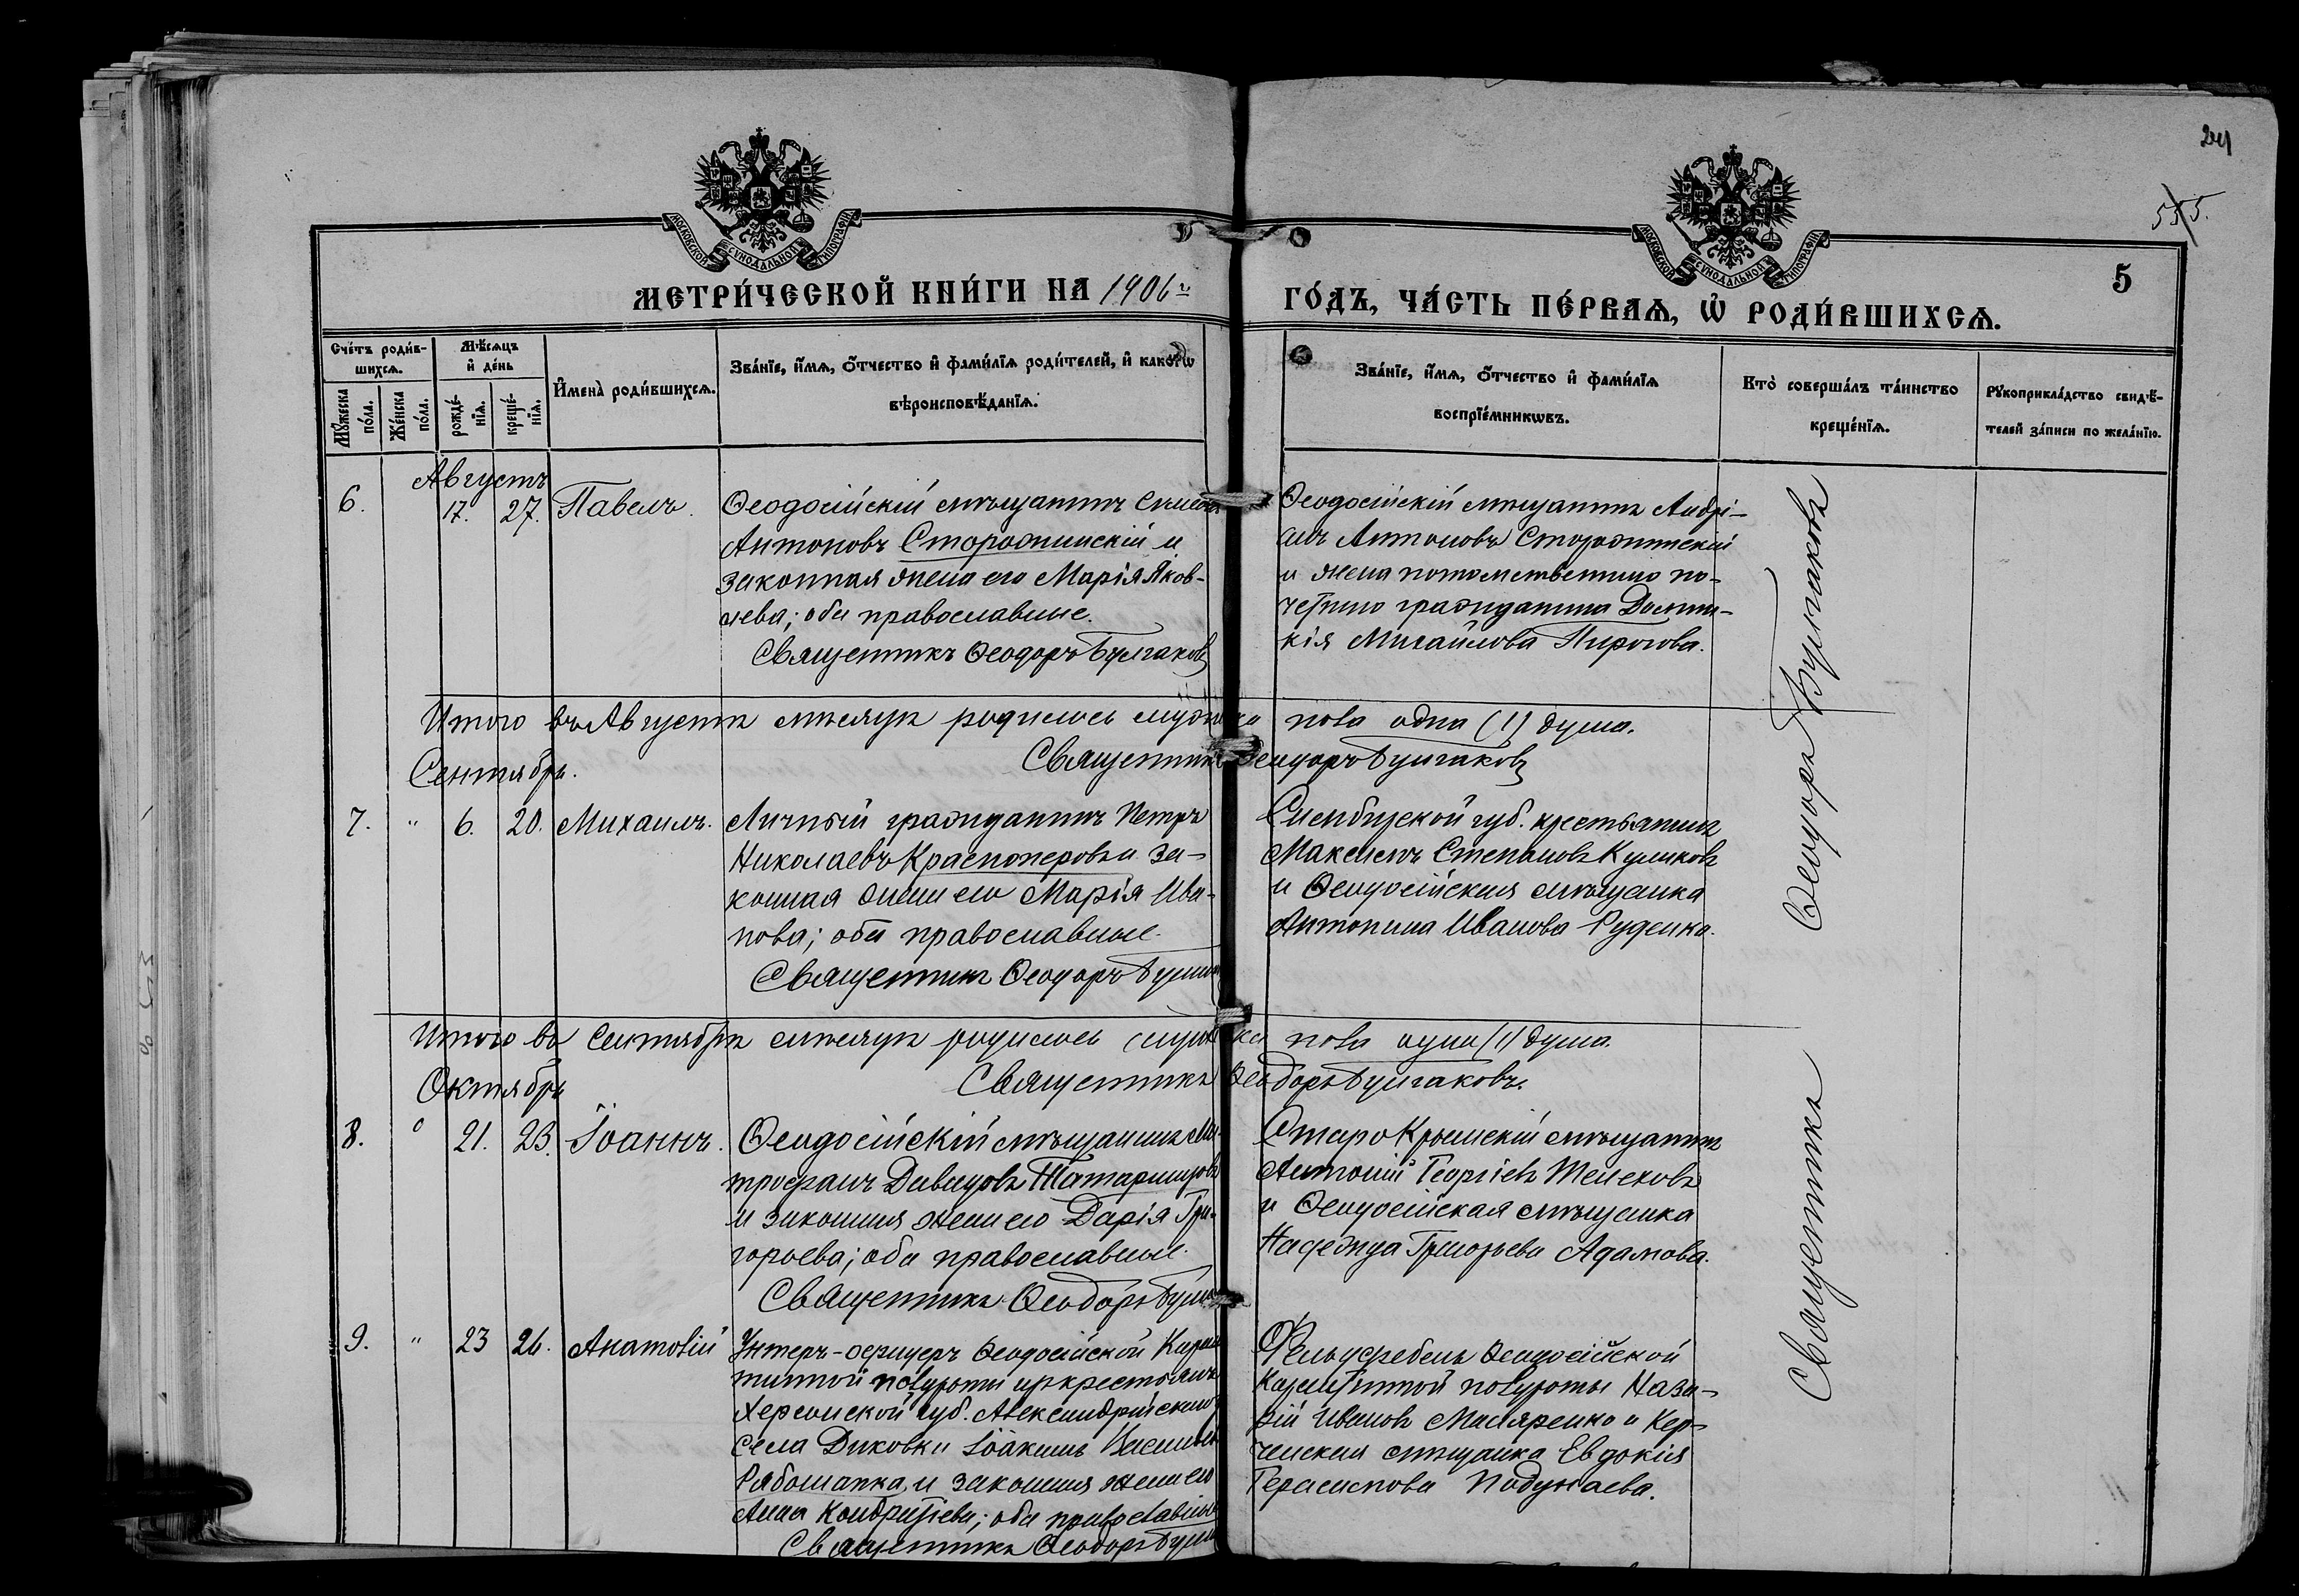 24
555.
МОСКОВСКОЙ СУНОДАЛЬНОЙ ТИПОГРАФІИ
МОСКОВСКОЙ СУНОДАЛЬНОЙ ТИПОГРАФІИ
5
МЕТРИ́ЧЕСКОЙ КНИ́ГИ НА 1906 г.
ГО́ДЪ, ЧА́СТЬ ПЕ́РВАѦ, Ѡ҆ РОДИ́ВШИХСѦ.
Сче́тъ роди́в-
шихсѧ.
Мꙋ́жеска по́ла.
Же́нска по́ла.
Мѣ́сѧцъ
и҆ де́нь
рожде́-
нїѧ.
креще́-
нїѧ.
И҆мена̀ роди́вшихсѧ.
Зва́нїе, и҆́мѧ, ѻ҆́тчество и҆ фами́лїѧ роди́телей, и҆ како́гѡ
вѣроисповѣ́данїѧ.
Зва́нїе, и҆́мѧ, ѻ҆́тчество и҆ фами́лїѧ
воспрїе́мникѡвъ.
Кто̀ соверша́лъ та́инство
креще́нїѧ.
Рꙋкоприкла́дство свидѣ́-
телей за́писи по жела́нїю.
Августъ
6. 17. 27. Павелъ.
Ѳеодосійскій мѣщанинъ
Антоновъ Сторожинскій и
законная жена его Марія Яков-
лева; оба православные.
Священникъ Ѳеодоръ Булгаковъ
Ѳеодосійскій мѣщанинъ Андрі-
анъ Антоновъ Сторожинскій
и жена потомственнаго по-
четнаго гражданина Домни-
кія Михайлова Пирогова.
Итого въ Августѣ мѣсяцѣ родилось мужеска пола одна (1) душа.
Священникъ Ѳеодоръ Булгаковъ
Сентябрь.
7. " 6. 20. Михаилъ.
Личный гражданинъ Петръ
Николаевъ Красноперовъ и за-
конная жена его Марія Ива-
нова; оба православные.
Священникъ Ѳеодоръ Булгак
Симбирской губ. крестьянинъ
Максимъ Степановъ Куликовъ
и Ѳеодосійская мѣщанка
Антонина Иванова Руденко.
Итого въ Сентябрѣ мѣсяцѣ родилось мужеска пола одна (1) душа.
Священникъ Ѳеодоръ Булгаковъ.
Октябрь
8. " 21. 23. Іоаннъ.
Ѳеодосійскій мѣщанинъ Ми-
трофанъ Давидовъ
и законная жена его Дарія Гри-
горьева; оба православные.
Священникъ Ѳеодоръ Булг
СтароКрымскій мѣщанинъ
Антоній Георгіевъ
и Ѳеодосійская мѣщанка
Надежда Григорьева Адамова.
9. " 23 26. Анатолій
Унтеръ-офицеръ Ѳеодосійской Каран-
тинной полуроты изъ крестьянъ
Херсонской губ. Александрійскаго
села Диковки Іоакимъ Васильев
Рябошапка и законная жена его
Анна Кондратіева; оба православные
Священникъ Ѳеодоръ Булг
Фельдфебель Ѳеодосійской
Карантинной полуроты Наза-
рій Ивановъ Масляренко и Кер-
ченская мѣщанка Евдокія
Герасимова Подунаева.
Священникъ Ѳеодоръ Булгаковъ